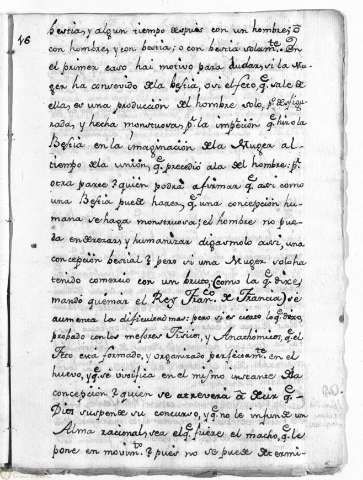 46
bestia, y algun tiempo despues con un hombre; ò
con hombre, y con bestia; ò con bestia solam.te En
el primer caso hai motivo para dudar, si la Mu-
ger ha convevido de la bestia, o si el feto, q.e sale de
ella, es una produccion del hombre solo, p.o desfigu-
rada, y hecha monstruosa, p.r la impresion q.e hizo la
Bestia en la imaginacion de la Muger al
tiempo de la union, q.e precediò a la del hombre: p.r
otra parte ¿quien podrà afirmar q.e assi como
una Bestia puede hacer, q.e una concepcion hu-
mana se haga monstruosa; el hombre no pue-
da enderezar, y humanizar digamoslo assi, una
concepcion bestial? pero si una Muger solo ha
tenido comercio con un bruto, (como la q.e dixe,
mandò quemar el Rey Fran.co de Francia) se
aumenta la dificultad mas: pero si es cierto lo q.e dexo,
probado con los mejores Fisicos, y Anathomicos, q.e el
Feto està formado, y organizado perfectam.te en el
huevo, y q.e se vivifica en el mismo instante dela
concepcion ¿quien se atreverà à decir q.e
Dios suspende su concurso, y q.e no le infunde un
Alma racional, sea el q.e fuere el macho, q.e le
pone en movim.to? pues no se puede determi-